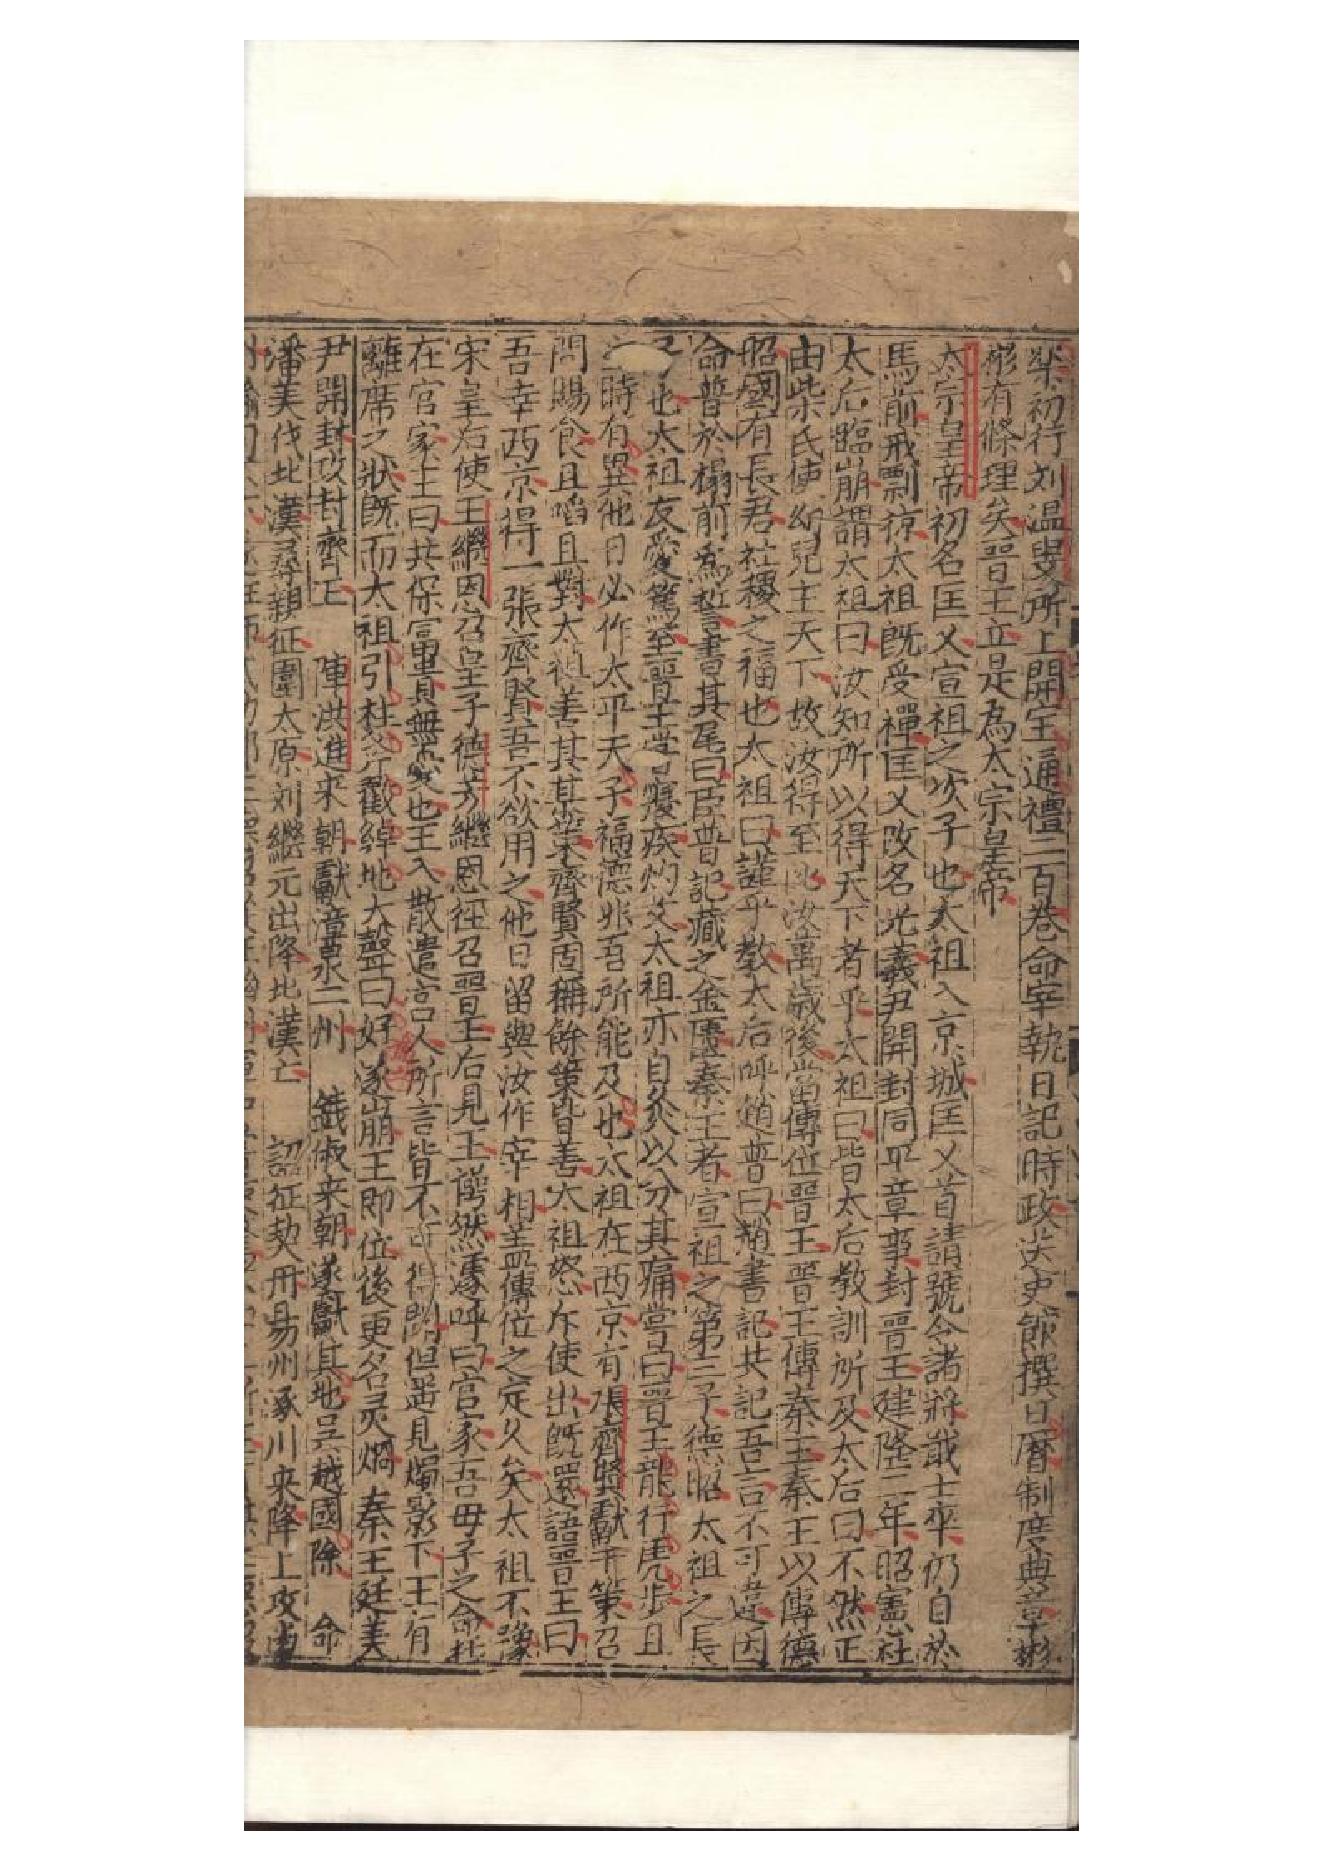 樂初行刘温叟所上開宝通禮二百巻命宰執日記時政送史館撰日曆制度典章彬
彬有條理矣晋王立是為太宗皇帝
太宗皇帝初名匡乂宣祖之次子也太祖入京城匡乂首請號令諸將戢士卒仍自於
馬前戒剽掠太祖既受禪匡乂改名光義尹開封同平章事封晋王建隆二年昭憲杜
太后臨崩謂太祖曰汝知所以得天下者乎太祖曰皆太后教訓所及太后曰不然正
由柴氏使㓜兒主天下故汝得至此汝萬歳後當傳位晋王晋王傳秦王秦王以傳德
昭國有長君社稷之福也太祖曰謹乎教太后呼趙普曰趙書記共記吾言不可違因
命普於榻前為誓書其尾曰臣普記藏之金匱秦王者宣祖之第三子德昭太祖之長
子也太祖友愛篤至晋王甞寢疾灼艾太祖亦自灸以分其痛甞曰晋王龍行虎步且
時有異他日必作太平天子福德非吾所能及也太祖在西京有張齊賢獻十策召
問賜食且啗且對太祖善其某策齊賢固稱餘策皆善太祖怒斥使出既還語晋王曰
吾幸西京得一張齊賢吾不欲用之他日留與汝作宰相盖傳位之定久矣太祖不豫
宋皇后使王繼恩召皇子德芳繼恩徑召晋王后見王愕然遽呼曰官家吾母子之命托
在官家王曰共保富貴無憂也王入散遣宮人所言皆不可得聞但遥見燭影下王有
離席之狀既而太祖引柱斧戳地大聲曰好遂崩王即位後更名炅焬秦王廷美
尹開封攻封齊王　陳洪進来朝獻漳泉二州　錢俶来朝遂獻其地呉越國除　命
潘美伐北漢尋親征圍太原刘継元出降北漢亡　詔征契丹易州涿川来降上攻幽